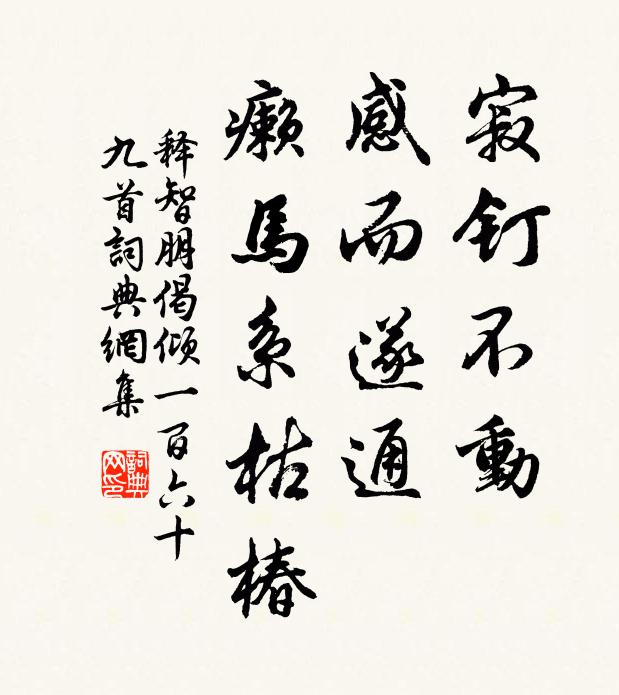 寂釘不動
感而遂通
癩馬系枯椿
释智朋偈倾一百六十
九首詞典網集
詞典
网印